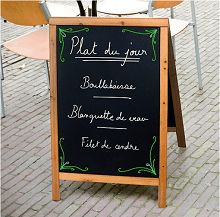 Plat du jour
Bouillabaisse
Blanquette de veau
Filet de cendre